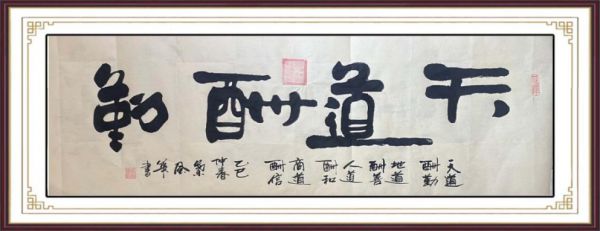 天道酬勤
天道
酬勤
地道
酬善
人道
酬和
商道
酬信
乙巳
仲春
书